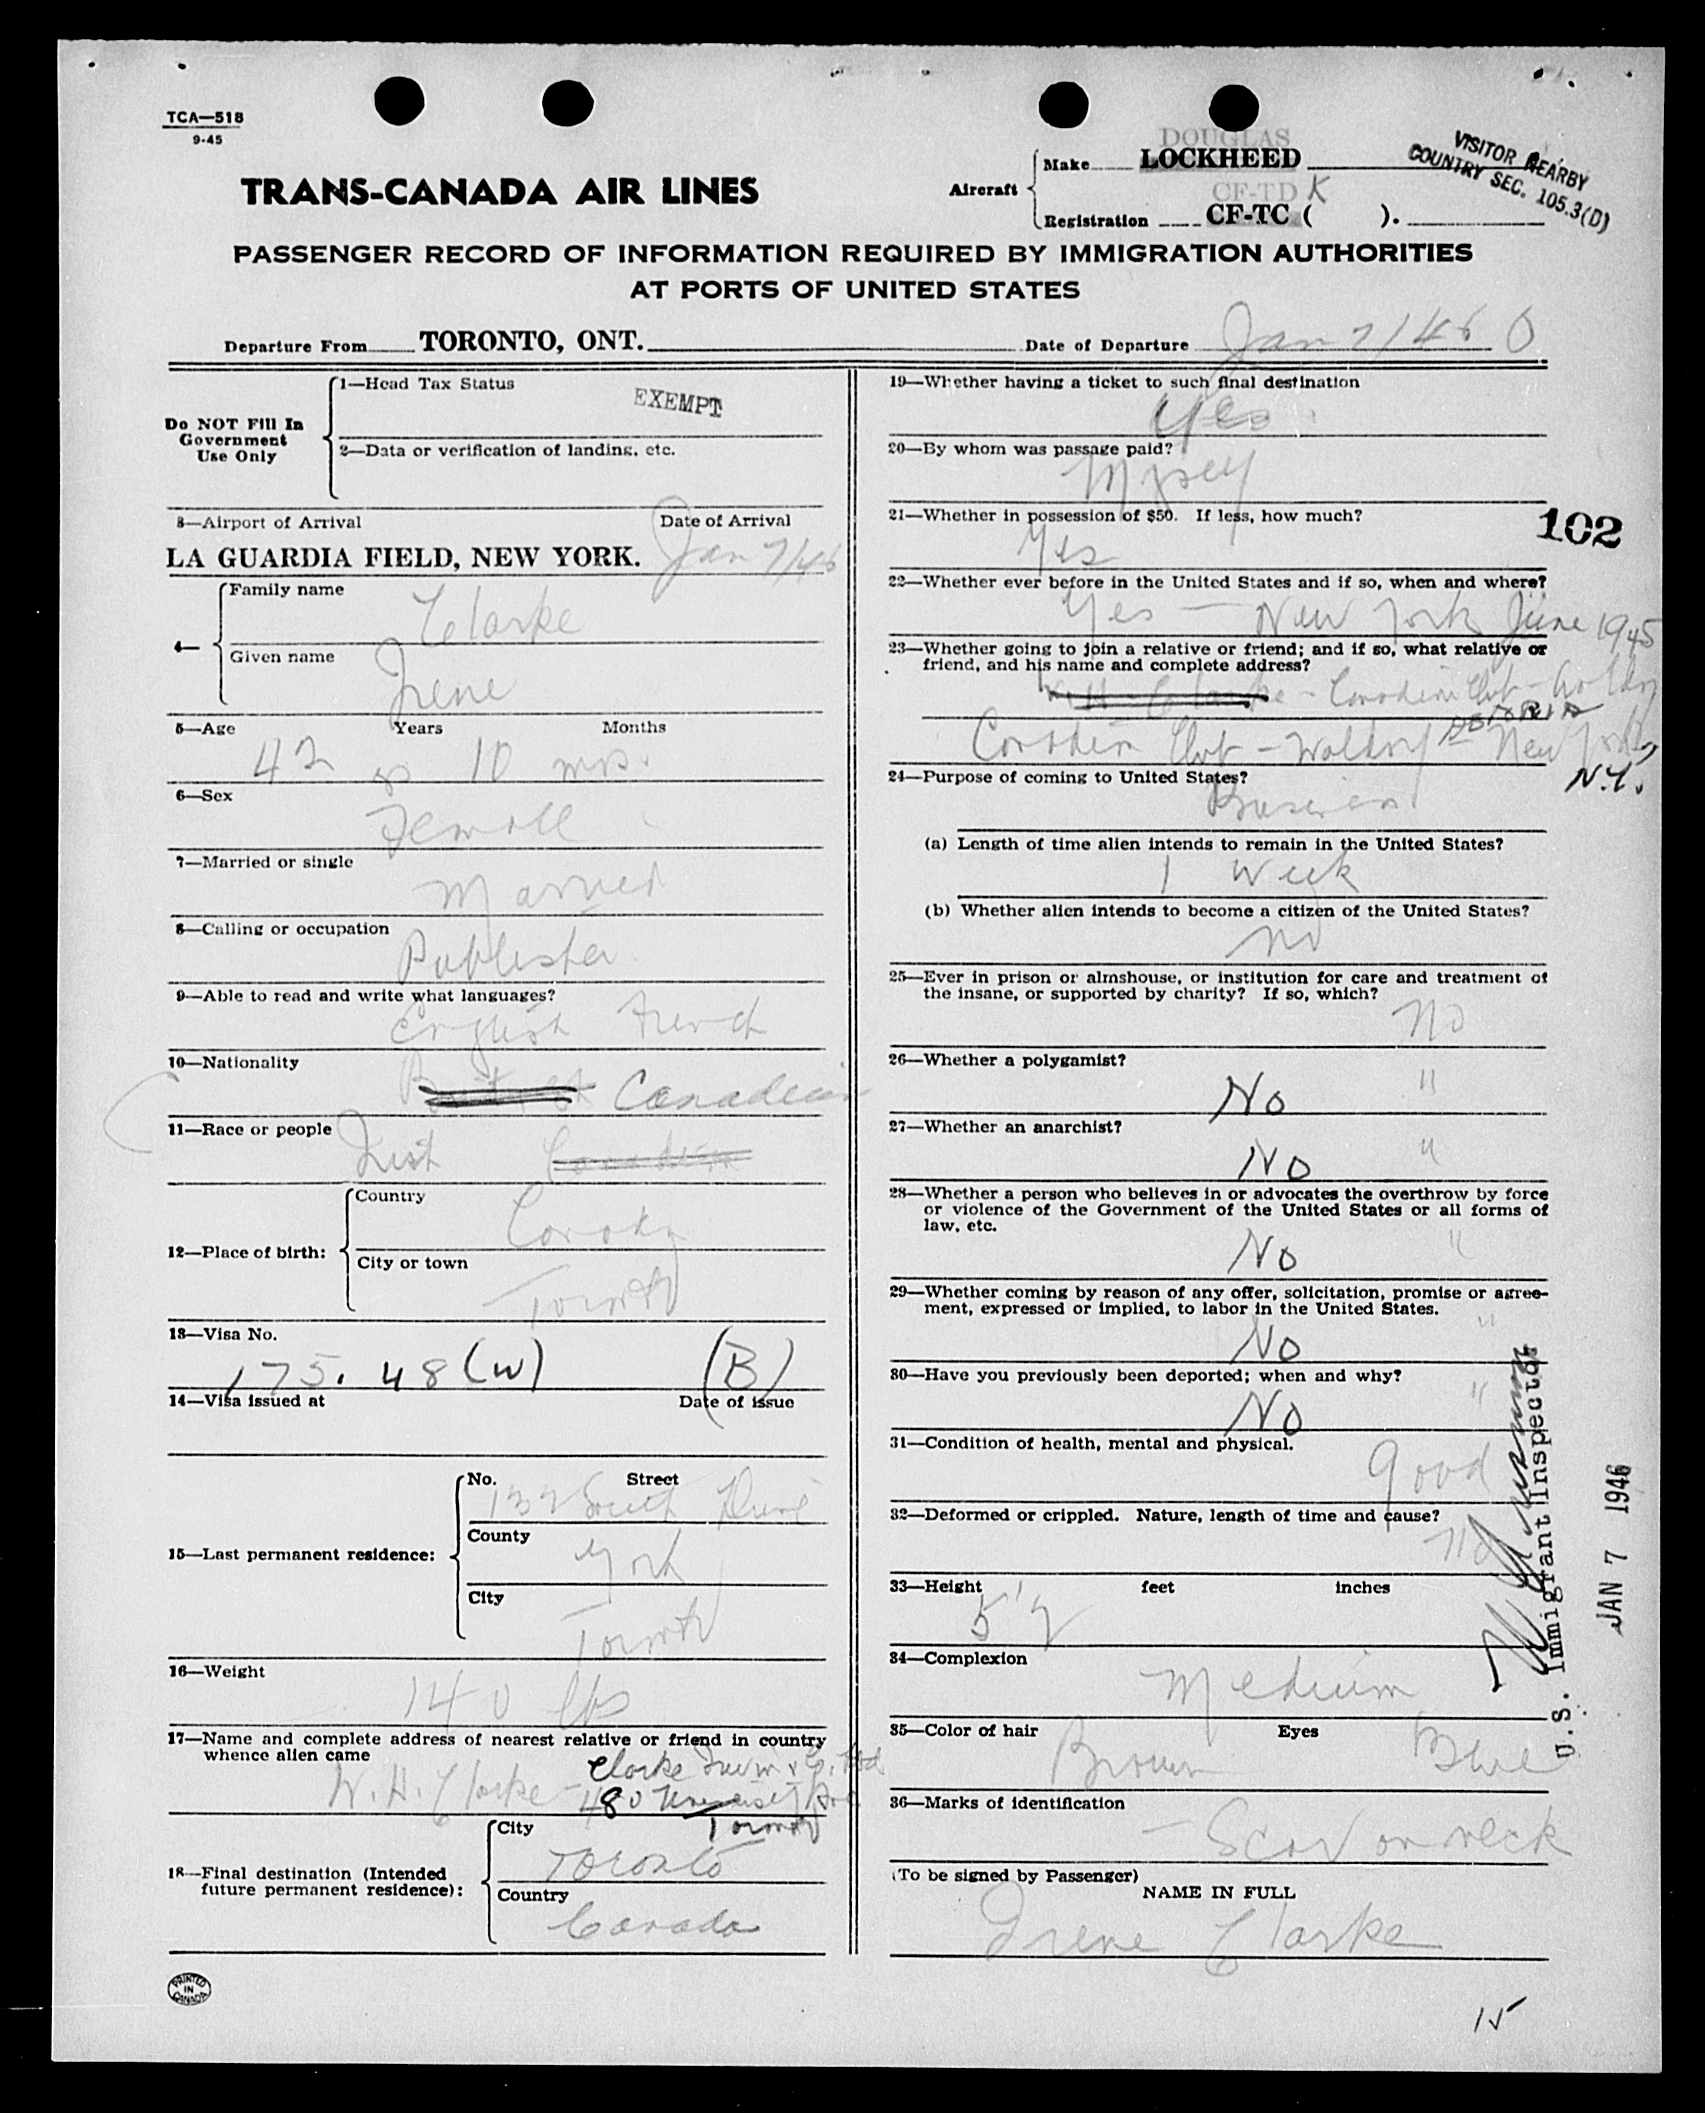 TCA—518
9-45
TRANS-CANADA AIR LINES
Aircraft
Make
DOUGLAS
LOCKHEED
Registration
CF-TD K
CF-TC ( ).
VISITOR NEARBY
COUNTRY SEC. 105.3(D)
PASSENGER RECORD OF INFORMATION REQUIRED BY IMMIGRATION AUTHORITIES
AT PORTS OF UNITED STATES
Departure From TORONTO, ONT. Date of Departure Jan 7/46
Do NOT Fill In
Government
Use Only
1—Head Tax Status
EXEMPT
2—Data or verification of landing, etc.
3—Airport of Arrival Date of Arrival
LA GUARDIA FIELD, NEW YORK. Jan 7/46
4—
Family name
Clarke
Given name
Irene
5—Age Years Months
42 10 mos.
6—Sex
Female
7—Married or single
Married
8—Calling or occupation
Publisher
9—Able to read and write what languages?
English French
10—Nationality
British Canadian
11—Race or people
Irish Canadian
12—Place of birth:
Country
Canada
City or town
Toronto
13—Visa No.
175.48 (W) (B)
14—Visa issued at Date of issue
15—Last permanent residence:
No. Street
132 South Drive
County
York
City
Toronto
16—Weight
140 lbs
17—Name and complete address of nearest relative or friend in country
whence alien came
W. H. Clarke - Clarke Irwin & Co. Ltd
480 University Ave
Toronto
18—Final destination (Intended
future permanent residence):
City
Toronto
Country
Canada
PRINTED
IN
CANADA
19—Whether having a ticket to such final destination
Yes
20—By whom was passage paid?
Myself
21—Whether in possession of $50. If less, how much?
Yes
102
22—Whether ever before in the United States and if so, when and where?
Yes — New York June 1945
23—Whether going to join a relative or friend; and if so, what relative or
friend, and his name and complete address?
W. H. Clarke - Canadian Club - Waldorf
ASTORIA
Canadian Club - Waldorf New York,
N.Y.
24—Purpose of coming to United States?
Business
(a) Length of time alien intends to remain in the United States?
1 Week
(b) Whether alien intends to become a citizen of the United States?
no
25—Ever in prison or almshouse, or institution for care and treatment of
the insane, or supported by charity? If so, which?
no
26—Whether a polygamist?
No "
27—Whether an anarchist?
No "
28—Whether a person who believes in or advocates the overthrow by force
or violence of the Government of the United States or all forms of
law, etc.
No "
29—Whether coming by reason of any offer, solicitation, promise or agree-
ment, expressed or implied, to labor in the United States.
No "
30—Have you previously been deported; when and why?
No "
31—Condition of health, mental and physical.
good
32—Deformed or crippled. Nature, length of time and cause?
no
33—Height feet inches
5'2
34—Complexion
Medium
35—Color of hair Eyes
Brown Blue
36—Marks of identification
— Scar on neck
(To be signed by Passenger)
NAME IN FULL
Irene Clarke
U.S. Immigrant Inspector
JAN 7 1946
15